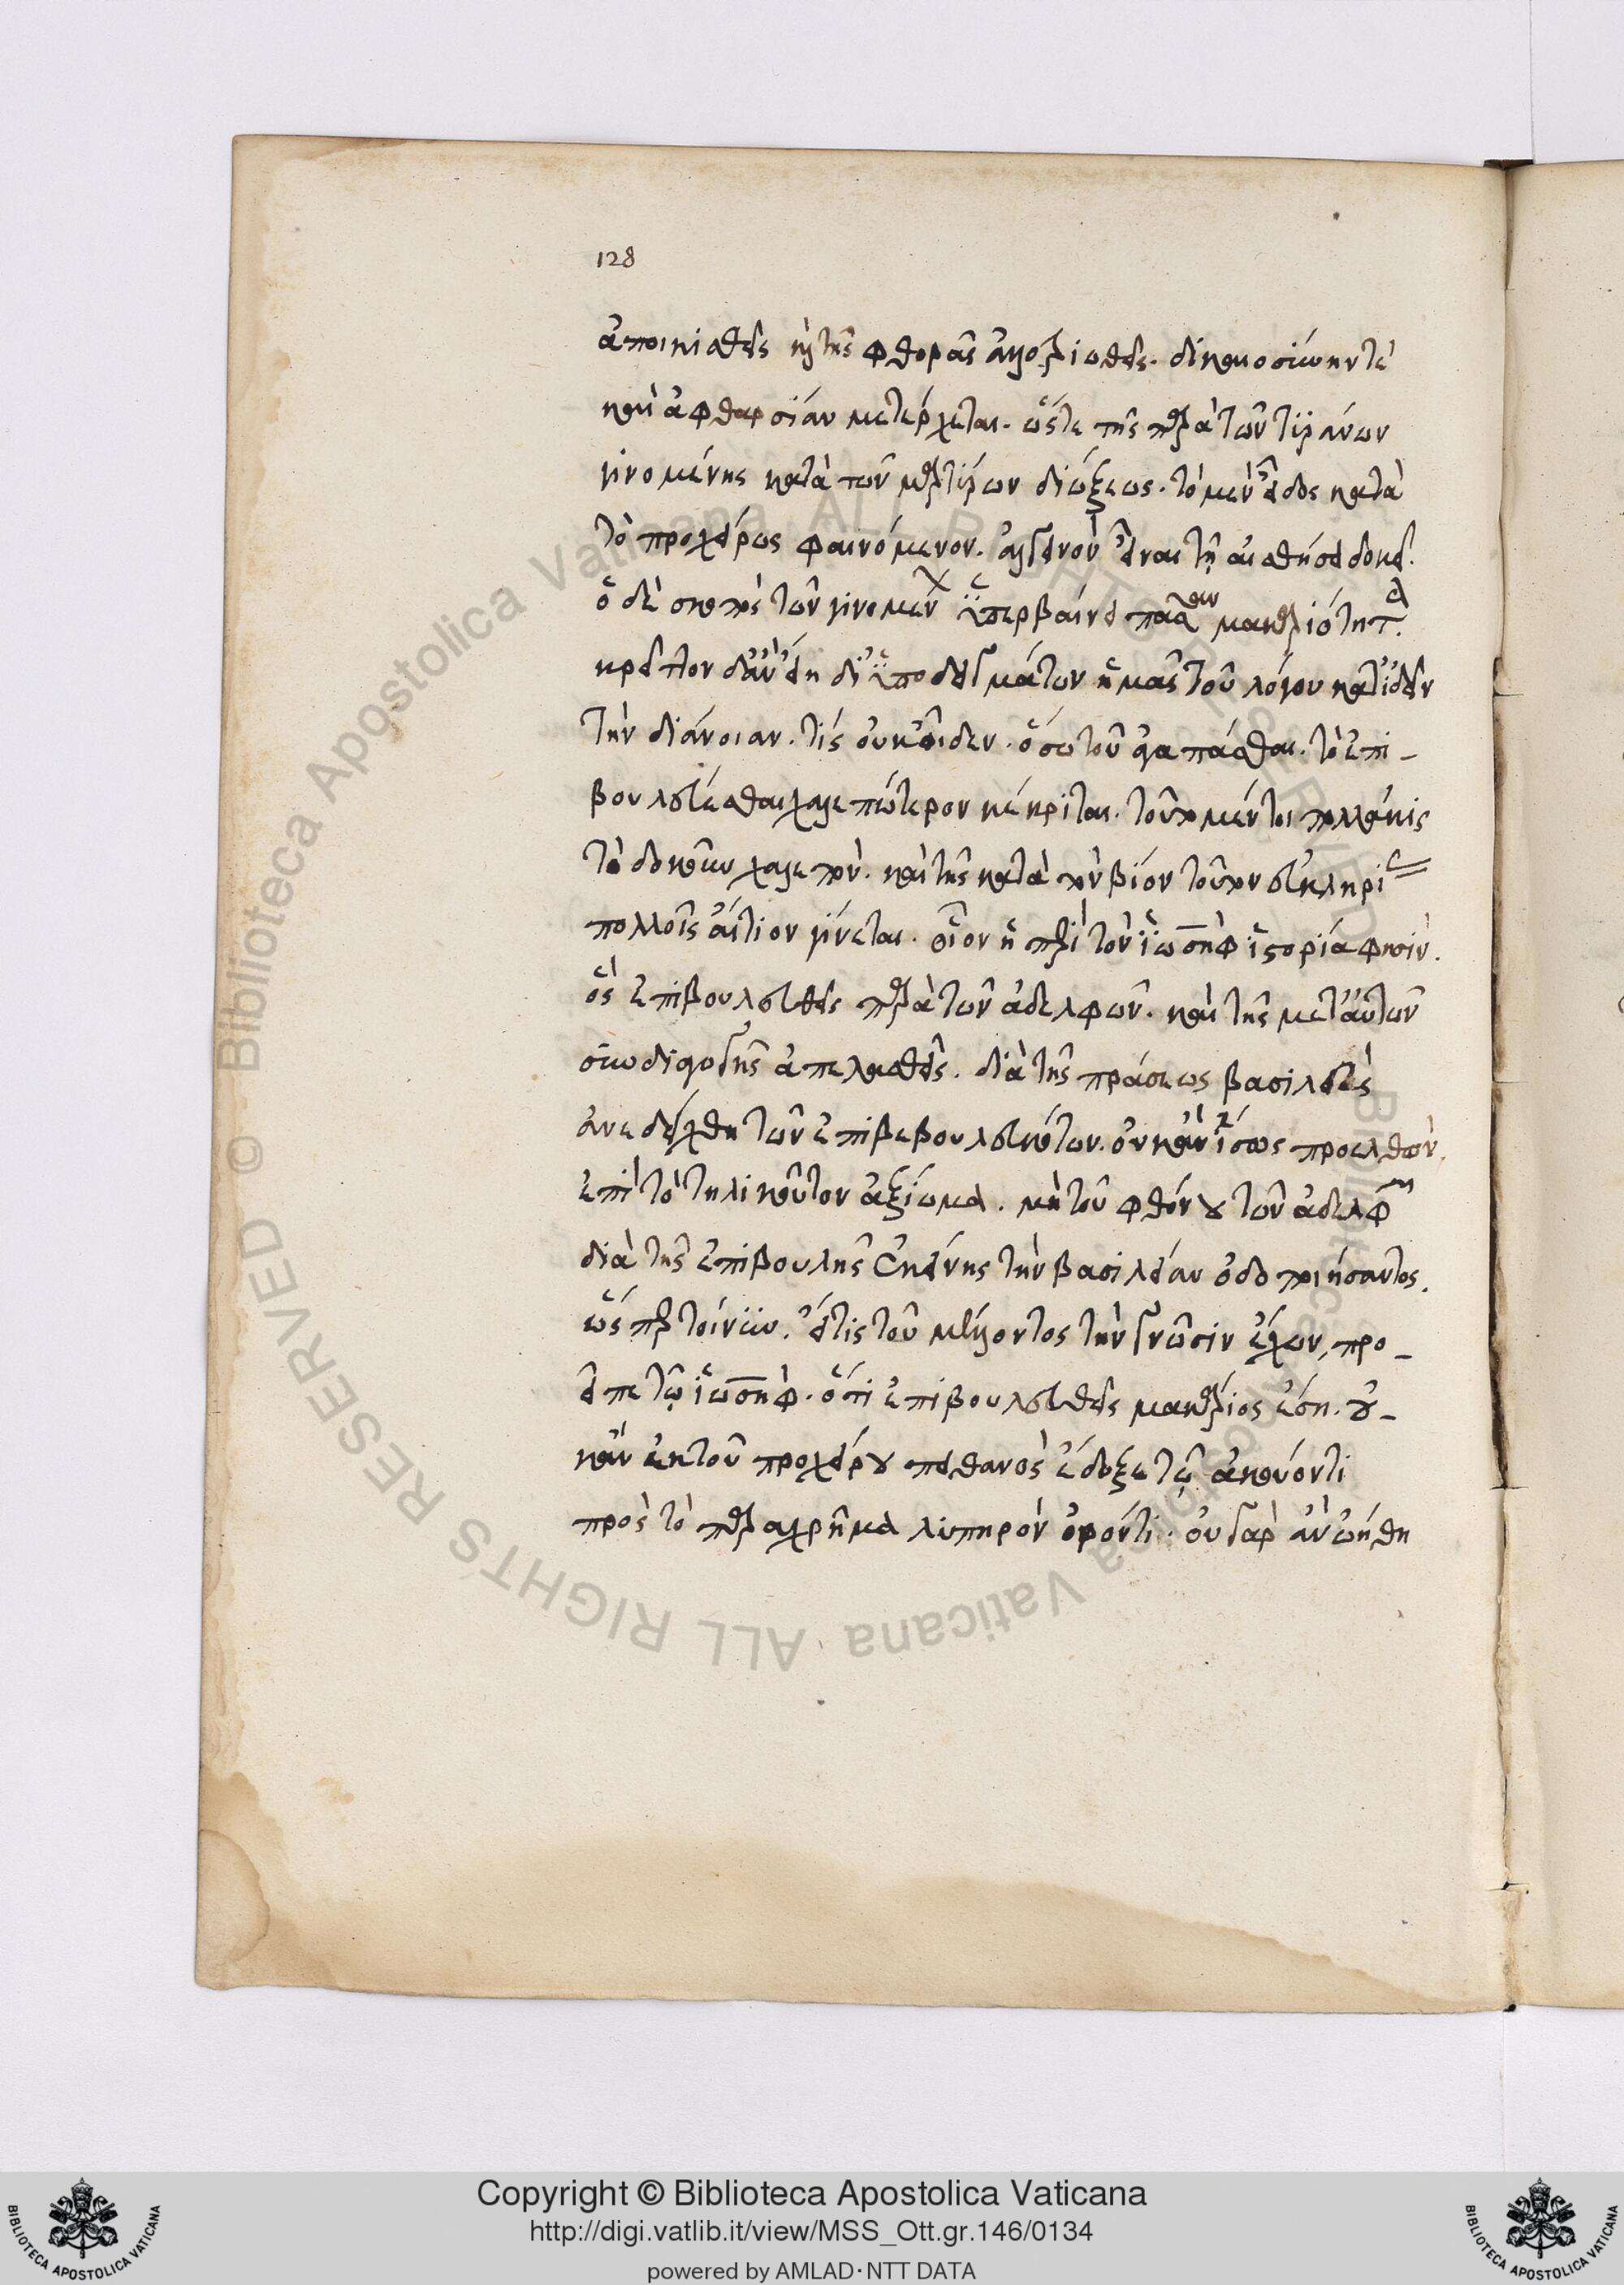 128
ἀποικισθεὶς καὶ τῆς φθορᾶς ἀλλοτριωθεὶς. δικαιοσύνην τὲ
καὶ ἀφθαρσίαν μετέρχεται. ὥστε τῆς παρὰ τῶν τυράνων
γινομένης κατὰ τῶν μαρτύρων διώξεως. τὸ μὲν εἶδος κατὰ
τὸ προχείρως φαινόμενον. ἀλγεινὸν εἶναι τῇ αἰσθήσει δοκεῖ.
ὁ δὲ σκοπὸς τῶν γινομένων ὑπερβαίνει πᾶσαν μακαριότητα.
κρεῖττον δ' ἂν εἴη δι' ὑποδειγμάτων ἡμᾶς τοῦ λόγου κατιδεῖν
τὴν διάνοιαν. τίς οὐκ οἶδεν. ὅσω τοῦ ἀγαπᾶσθαι. τὸ ἐπι-
βουλεύεσθαι χαλεπώτερον κέκριται. τοῦτο μέντοι πολλάκις
τὸ δοκοῦν χαλεπὸν. καὶ τῆς κατὰ τὸν βίον τοῦτον εὐκληρίας
πολλοῖς αἴτιον γίνεται. οἷον ἡ περὶ τὸν ἰωσὴφ ἱστορία φησὶν.
ὃς ἐπιβουλευθεὶς παρὰ τῶν ἀδελφῶν. καὶ τῆς μετ' αὐτῶν
συνδιαγωγῆς ἀπελαθεὶς. διὰ τῆς πράσεως βασιλεὺς
ἀνεδείχθη τῶν ἐπιβεβουλευκότων. οὐκ ἂν ἴσως προελθὼν
ἐπὶ τὸ τηλικοῦτον ἀξίωμα. μὴ τοῦ φθόνου τῶν ἀδελφῶν
διὰ τῆς ἐπιβουλῆς ἐκείνης τὴν βασιλείαν ὁδοποιήσαντος.
ὥσπερ τοίνυν. εἴ τις τοῦ μέλλοντος τὴν γνῶσιν ἔχων, προ-
εῖπε τῶ ἰωσὴφ. ὅτι ἐπιβουλευθεὶς μακάριος ἔση. οὐ-
κ ἂν ἐκ τοῦ προχείρου πιθανὸς ἔδοξε τῶ ἀκούοντι
πρὸς τὸ παραχρῆμα λυπηρὸν ὁρῶντι. οὐ γὰρ ἂν ὠήθη
Copyright © Biblioteca Apostolica Vaticana
http://digi.vatlib.it/view/MSS_Ott.gr.146/0134
powered by AMLAD·NTT DATA
© Biblioteca Apostolica Vaticana ALL RIGHTS RESERVED
© Biblioteca Apostolica Vaticana ALL RIGHTS RESERVED
BIBLIOTECA APOSTOLICA VATICANA
BIBLIOTECA APOSTOLICA VATICANA